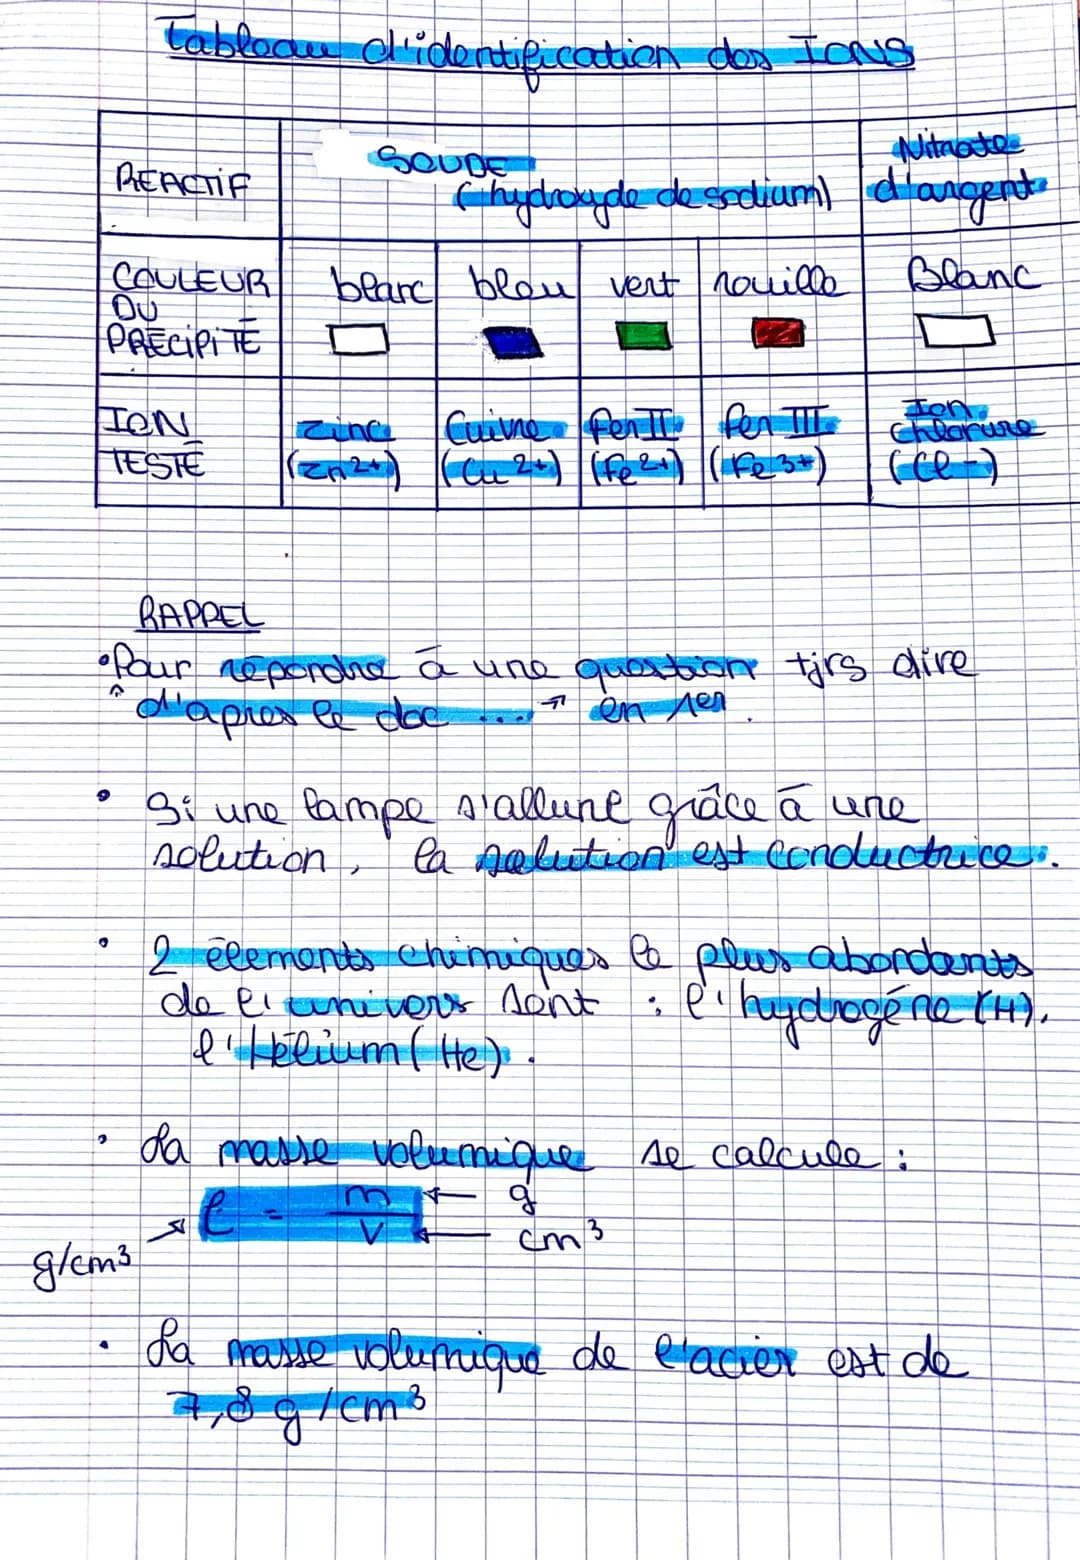 Tableau d'identification des IONS
REACTIF
SOUDE
(hydroxyde de sodium)
Nitrate
d'argent
COULEUR
DU
PRÉCIPITÉ
blanc
bleu
vert
rouille
Blanc
ION
TESTÉ
Zinc
(Zn²⁺)
Cuivre
(Cu²⁺)
fer II
(Fe²⁺)
fer III
(Fe³⁺)
Ion
Chlorure
(Cl⁻)
RAPPEL
• Pour répondre à une question tjrs dire
"d'après le doc ...." en 1er.
• Si une lampe s'allume grâce à une
solution, la solution est conductrice.
• 2 élements chimiques le plus abondants
de l'univers sont : l'hydrogéne (H),
l'Hélium (He).
• La masse volumique se calcule :
ρ = m/V ← g
← cm³
g/cm³
• La masse volumique de l'acier est de
7,8 g/cm³